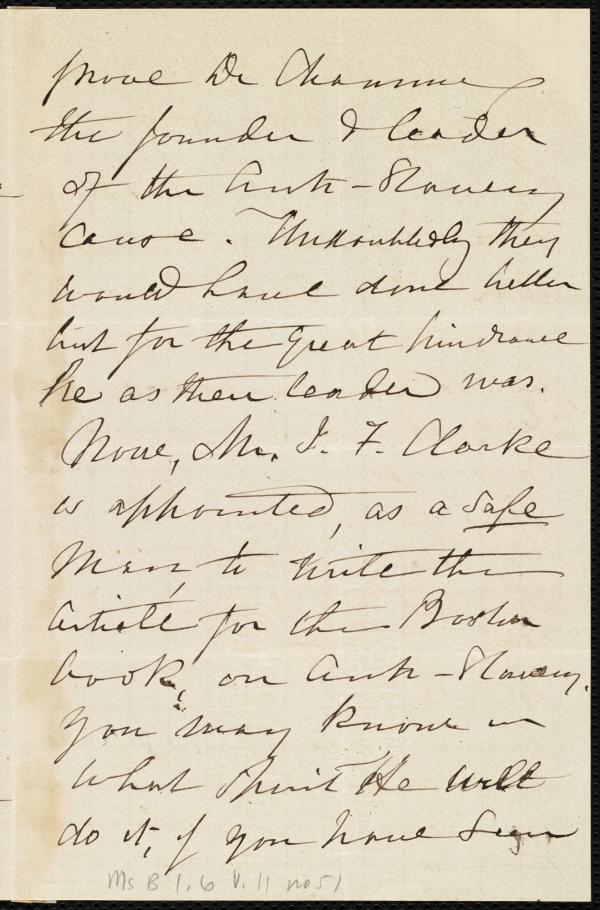 prove Dr Channing
the founder & leader
of the Anti-Slavery
cause. Undoubtedly they
would have done better
but for the great hindrance
he as their leader was.
Now, Mr. J. F. Clarke
is appointed, as a safe
man, to write the
article for the Boston
book, on Anti-Slavery.
You may know in
what spirit He will
do it, if you have seen
Ms B 1.6 V.11 no 51